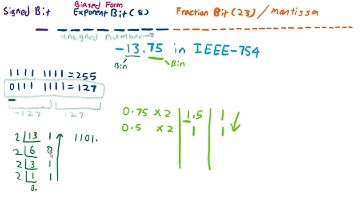 Signed Bit
Biased Form
Exponent Bit (8)
Fraction Bit (23) / Mantissa
unsigned number
-13.75 in IEEE-754
Bin
Bin
1111 1111 = 255
0111 1111 = 127
-127
127
0.75 × 2 | 1.5 | 1
0.5 × 2 | 1 | 1
2 | 13 1
2 | 6 0
2 | 3 1
2 | 1 1
0.
1101.